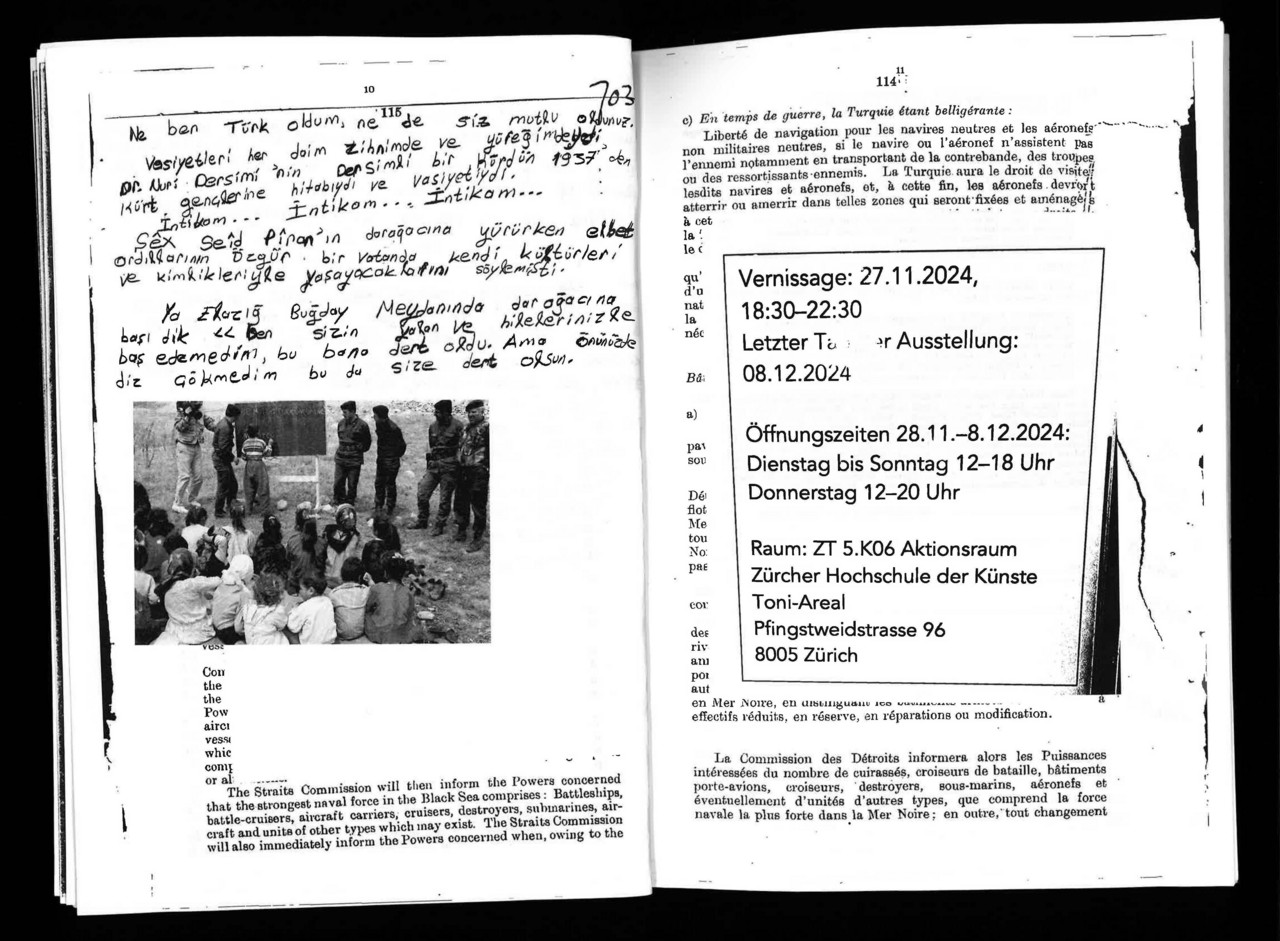 10
115
703
Ne ben Türk oldum, ne de siz mutlu oldunuz.
Vasiyetleri her daim zihnimde ve yüreğimdeydi
Dr. Nuri Dersimi'nin Dersimli bir Kürdün 1937'den
Kürt gençlerine hitabıydı ve vasiyetiydi.
İntikam... İntikam... İntikam...
Şêx Seîd Pîran'ın darağacına yürürken elbet
ardıllarının özgür bir vatanda kendi kültürleri
ve kimlikleriyle yaşayacaklarını söylemişti.
Ya Elazığ Buğday Meydanında darağacına
başı dik << ben sizin yalan ve hilelerinizle
baş edemedim, bu bana dert oldu. Ama önünüzde
diz çökmedim bu da size dert olsun.
Con
the
the
Pow
airc
vess
whic
com
or al
The Straits Commission will then inform the Powers concerned
that the strongest naval force in the Black Sea comprises: Battleships,
battle-cruisers, aircraft carriers, cruisers, destroyers, submarines, air-
craft and units of other types which may exist. The Straits Commission
will also immediately inform the Powers concerned when, owing to the
11
114
c) En temps de guerre, la Turquie étant belligérante :
Liberté de navigation pour les navires neutres et les aéronefs
non militaires neutres, si le navire ou l'aéronef n'assistent pas
l'ennemi notamment en transportant de la contrebande, des troupes
ou des ressortissants ennemis. La Turquie aura le droit de visiter
lesdits navires et aéronefs, et, à cette fin, les aéronefs devront
atterrir ou amerrir dans telles zones qui seront fixées et aménagées
à cet
la
le
qu'
d'u
nat
la
néc
a)
pa
sou
Dé
flot
Me
tou
No
pas
cor
des
riv
ani
por
aut
Vernissage: 27.11.2024,
18:30–22:30
Letzter Ta er Ausstellung:
08.12.2024
Öffnungszeiten 28.11.–8.12.2024:
Dienstag bis Sonntag 12–18 Uhr
Donnerstag 12–20 Uhr
Raum: ZT 5.K06 Aktionsraum
Zürcher Hochschule der Künste
Toni-Areal
Pfingstweidstrasse 96
8005 Zürich
en Mer Noire, en distinguant les
effectifs réduits, en réserve, en réparations ou modification.
La Commission des Détroits informera alors les Puissances
intéressées du nombre de cuirassés, croiseurs de bataille, bâtiments
porte-avions, croiseurs, destroyers, sous-marins, aéronefs et
éventuellement d'unités d'autres types, que comprend la force
navale la plus forte dans la Mer Noire; en outre, tout changement